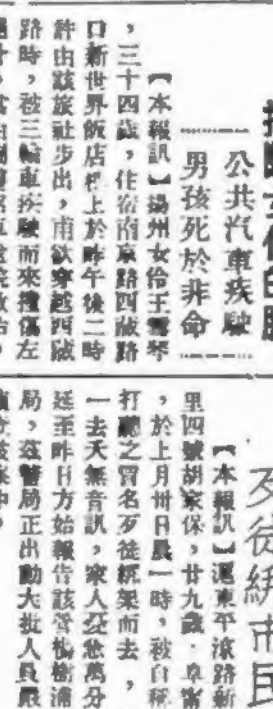 公共汽車疾駛
男孩死於非命
【本報訊】揚州女伶王雪琴
，三十四歲，住宿南京路西藏路
口新世界飯店樓上於昨午後二時
許由該旅社步出，甫欲穿越西藏
路時，被三輪車疾駛而來撞傷左
歹徒綁市民
【本報訊】滬東平涼路新
里四號胡家保，廿九歲，阜甯
，於上月卅日晨一時，被自稱
打聽之冒名歹徒綁架而去，
一去天無音訊，家人焦急萬分
延至昨日方始報告該管楊樹浦
局，茲警局正出動大批人員嚴